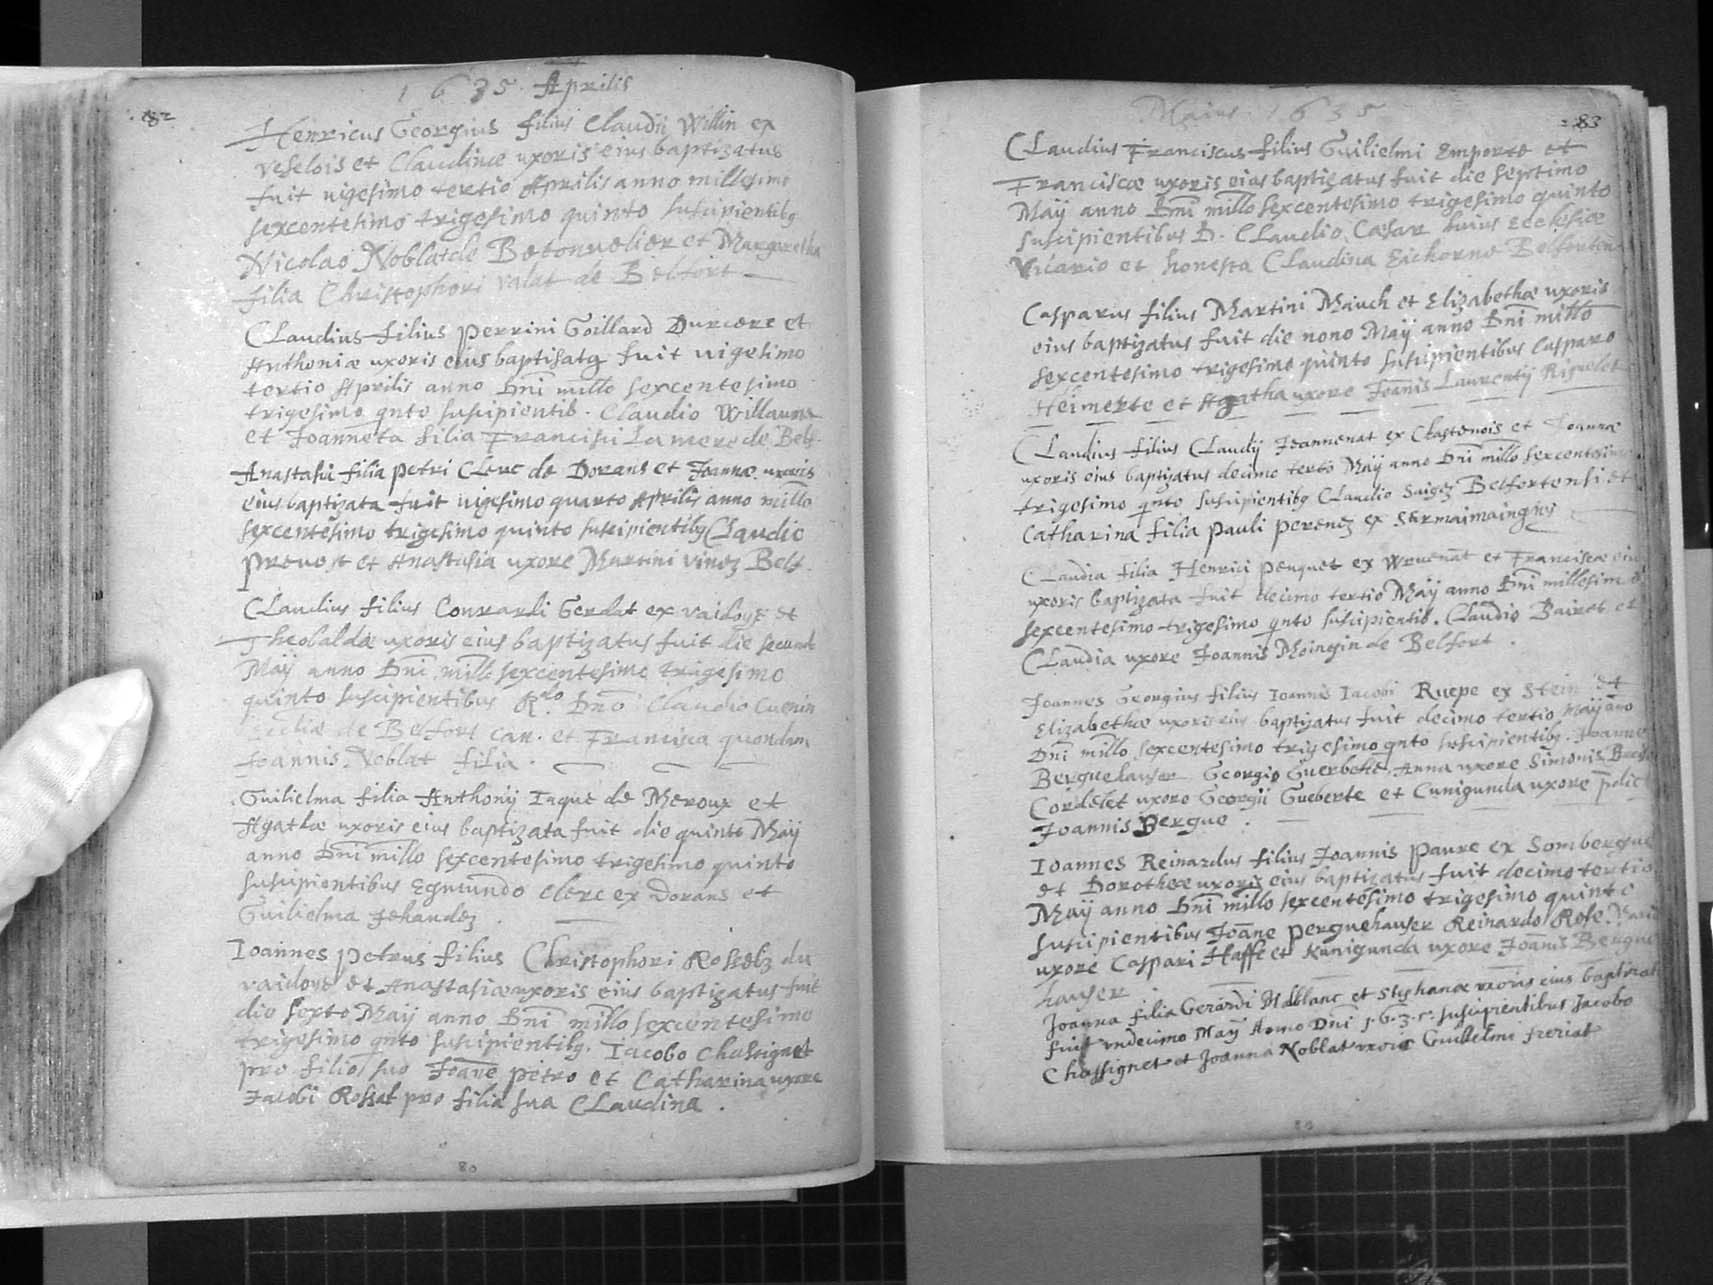 1635 Aprilis
182
Henricus Georgius filius Claudii Willin ex
Veselois et Claudinæ uxoris eius baptizatus
fuit uigesimo tertio Aprilis anno millesimo
sexcentesimo trigesimo quinto suscipientibq
Nicolao Noblat de Betonuelier et Margaretha
filia Christophori Valat de Belfort
Claudius filius Perrini Goillard Durcere et
Anthoniæ uxoris eius baptisatq fuit uigesimo
tertio Aprilis anno Dni millo sexcentesimo
trigesimo qnto suscipientib. Claudio Willaume
et Joanneta filia Francisci Lamere de Belf.
Anastasia filia Petri Clerc de Dorans et Joannæ uxoris
eius baptizata fuit uigesimo quarto Aprilis anno millo
sexcentesimo trigesimo quinto suscipientibq Claudio
Preuost et Anastasia uxore Martini Vinez Belf.
Claudius filius Conrardi Gerdat ex Vaidoye et
Theobaldæ uxoris eius baptizatus fuit die secundo
Maij anno Dni millo sexcentesimo trigesimo
quinto suscipientibus Rdo. Dno Claudio Cuenin
Eccliæ de Belfort can. et Francisca quondam
Joannis Noblat filia.
Guilielma filia Anthonij Inque de Meroux et
Agathæ uxoris eius baptizata fuit die quinto Maij
anno Dni millo sexcentesimo trigesimo quinto
suscipientibus Egmundo Clerc ex Dorans et
Guilielma Jehandez
Ioannes Petrus filius Christophori Rosselz du
Vaidoye et Anastasiæ uxoris eius baptizatus fuit
die sexto Maij anno Dni millo sexcentesimo
trigesimo qnto suscipientibq. Iacobo Chassignet
pro filio suo Joane Petro et Catharina uxore
Jacobi Rossat pro filia sua Claudina.
80
Maius 1635
183
Claudius Franciscus filius Guilielmi Emporte et
Franciscæ uxoris eius baptizatus fuit die septimo
Maij anno Dni millo sexcentesimo trigesimo quinto
suscipientibus D. Claudio Cæsar huius Ecclesiæ
Vicario et honesta Claudina Eichorne Belfortén
Casparus filius Martini Mauch et Elizabethæ uxoris
eius baptizatus fuit die nono Maij anno Dni millo
sexcentesimo trigesimo quinto suscipientibus Casparo
Heimerte et Agatha uxore Joanis Laurentij Riguelet
Claudius filius Claudij Jeannenat ex Chastenois et Joannæ
uxoris eius baptizatus decimo tertio Maij anno Dni millo sexcentesimo
trigesimo qnto suscipientibq Claudio Saigez Belfortensi et
Catharina filia Pauli Perenez ex Sermaimaingny
Claudia filia Henrici Penquet ex Wruenat et Franciscæ eius
uxoris baptizata fuit decimo tertio Maij anno Dni millesimo
sexcentesimo trigesimo qnto suscipientib. Claudio Bairet et
Claudia uxore Joannis Moingin de Belfort.
Joannes Georgius filius Ioannis Iacobi Ruepe ex Stein et
Elizabethæ uxoris eius baptizatus fuit decimo tertio Maij ano
Dni millo sexcentesimo trigesimo qnto suscipientibq. Joanne
Berguehauser Georgio Guerbehe, Anna uxore Simonis
Cordelet uxore Georgii Gueberte et Cunigunda uxore pdic
Joannis Bergue.
Ioannes Reinardus filius Joannis Paure ex Sombergue
et Dorotheæ uxoris eius baptizatus fuit decimo tertio
Maij anno Dni millo sexcentesimo trigesimo quinto
suscipientibus Joane Perguehauser Reinardo Rose. Maria
uxore Caspari Hafft et Kunigunda uxore Joanis Bergue
hauser.
Joanna filia Gerardi Malblanc et Stephanæ uxoris eius baptizat
fuit undecimo Maij Anno Dni 1.6.3.5. suscipientibus Jacobo
Chassignet et Joanna Noblat uxore Guillelmi Freriat